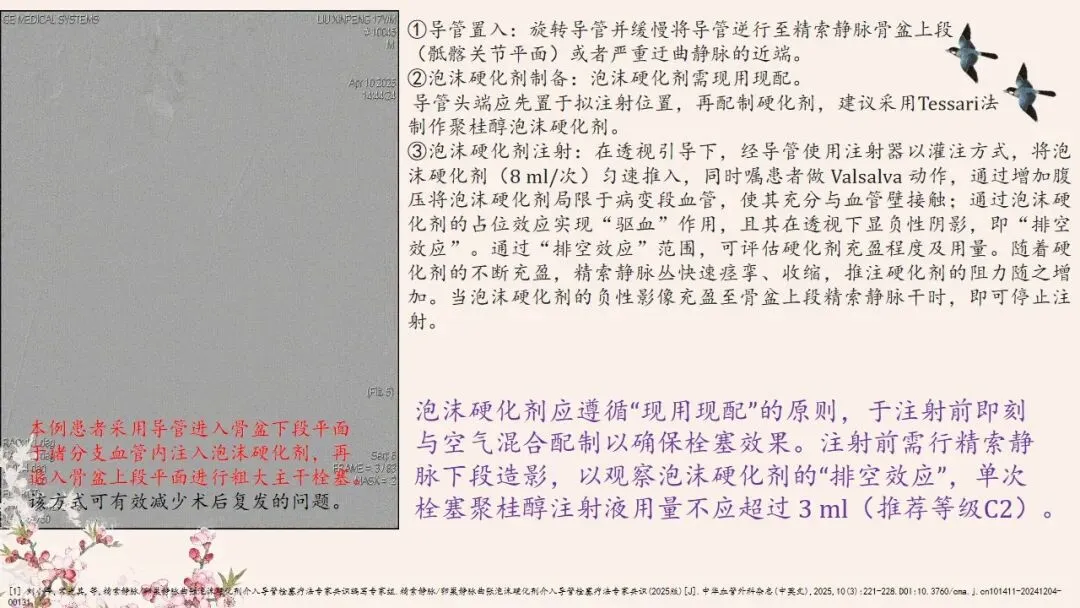 GE MEDICAL SYSTEMS
LIU XINPENG 17Y/M
# 10045
M
Apr 10 2025
14:44:24
(Filt. 5)
Seq 6
FRAME = 3 / 83
MASK = 2
本例患者采用导管进入骨盆下段平面
于诸分支血管内注入泡沫硬化剂,再
退入骨盆上段平面进行粗大主干栓塞。
该方式可有效减少术后复发的问题。
①导管置入:旋转导管并缓慢将导管逆行至精索静脉骨盆上段
(骶髂关节平面)或者严重迂曲静脉的近端。
②泡沫硬化剂制备:泡沫硬化剂需现用现配。
导管头端应先置于拟注射位置,再配制硬化剂,建议采用Tessari法
制作聚桂醇泡沫硬化剂。
③泡沫硬化剂注射:在透视引导下,经导管使用注射器以灌注方式,将泡
沫硬化剂(8 ml/次)匀速推入,同时嘱患者做 Valsalva 动作,通过增加腹
压将泡沫硬化剂局限于病变段血管,使其充分与血管壁接触;通过泡沫硬
化剂的占位效应实现“驱血”作用,且其在透视下显负性阴影,即“排空
效应”。通过“排空效应”范围,可评估硬化剂充盈程度及用量。随着硬
化剂的不断充盈,精索静脉丛快速痉挛、收缩,推注硬化剂的阻力随之增
加。当泡沫硬化剂的负性影像充盈至骨盆上段精索静脉干时,即可停止注
射。
泡沫硬化剂应遵循“现用现配”的原则,于注射前即刻
与空气混合配制以确保栓塞效果。注射前需行精索静
脉下段造影,以观察泡沫硬化剂的“排空效应”,单次
栓塞聚桂醇注射液用量不应超过 3 ml(推荐等级C2)。
[1] 等. 精索静脉/卵巢静脉曲张泡沫硬化剂介入导管栓塞疗法专家共识编写专家组. 精索静脉/卵巢静脉曲张泡沫硬化剂介入导管栓塞疗法专家共识(2025版)[J]. 中华血管外科杂志(中英文),2025,10(3):221-228. DOI:10.3760/cma.j.cn101411-20241204-
00131.